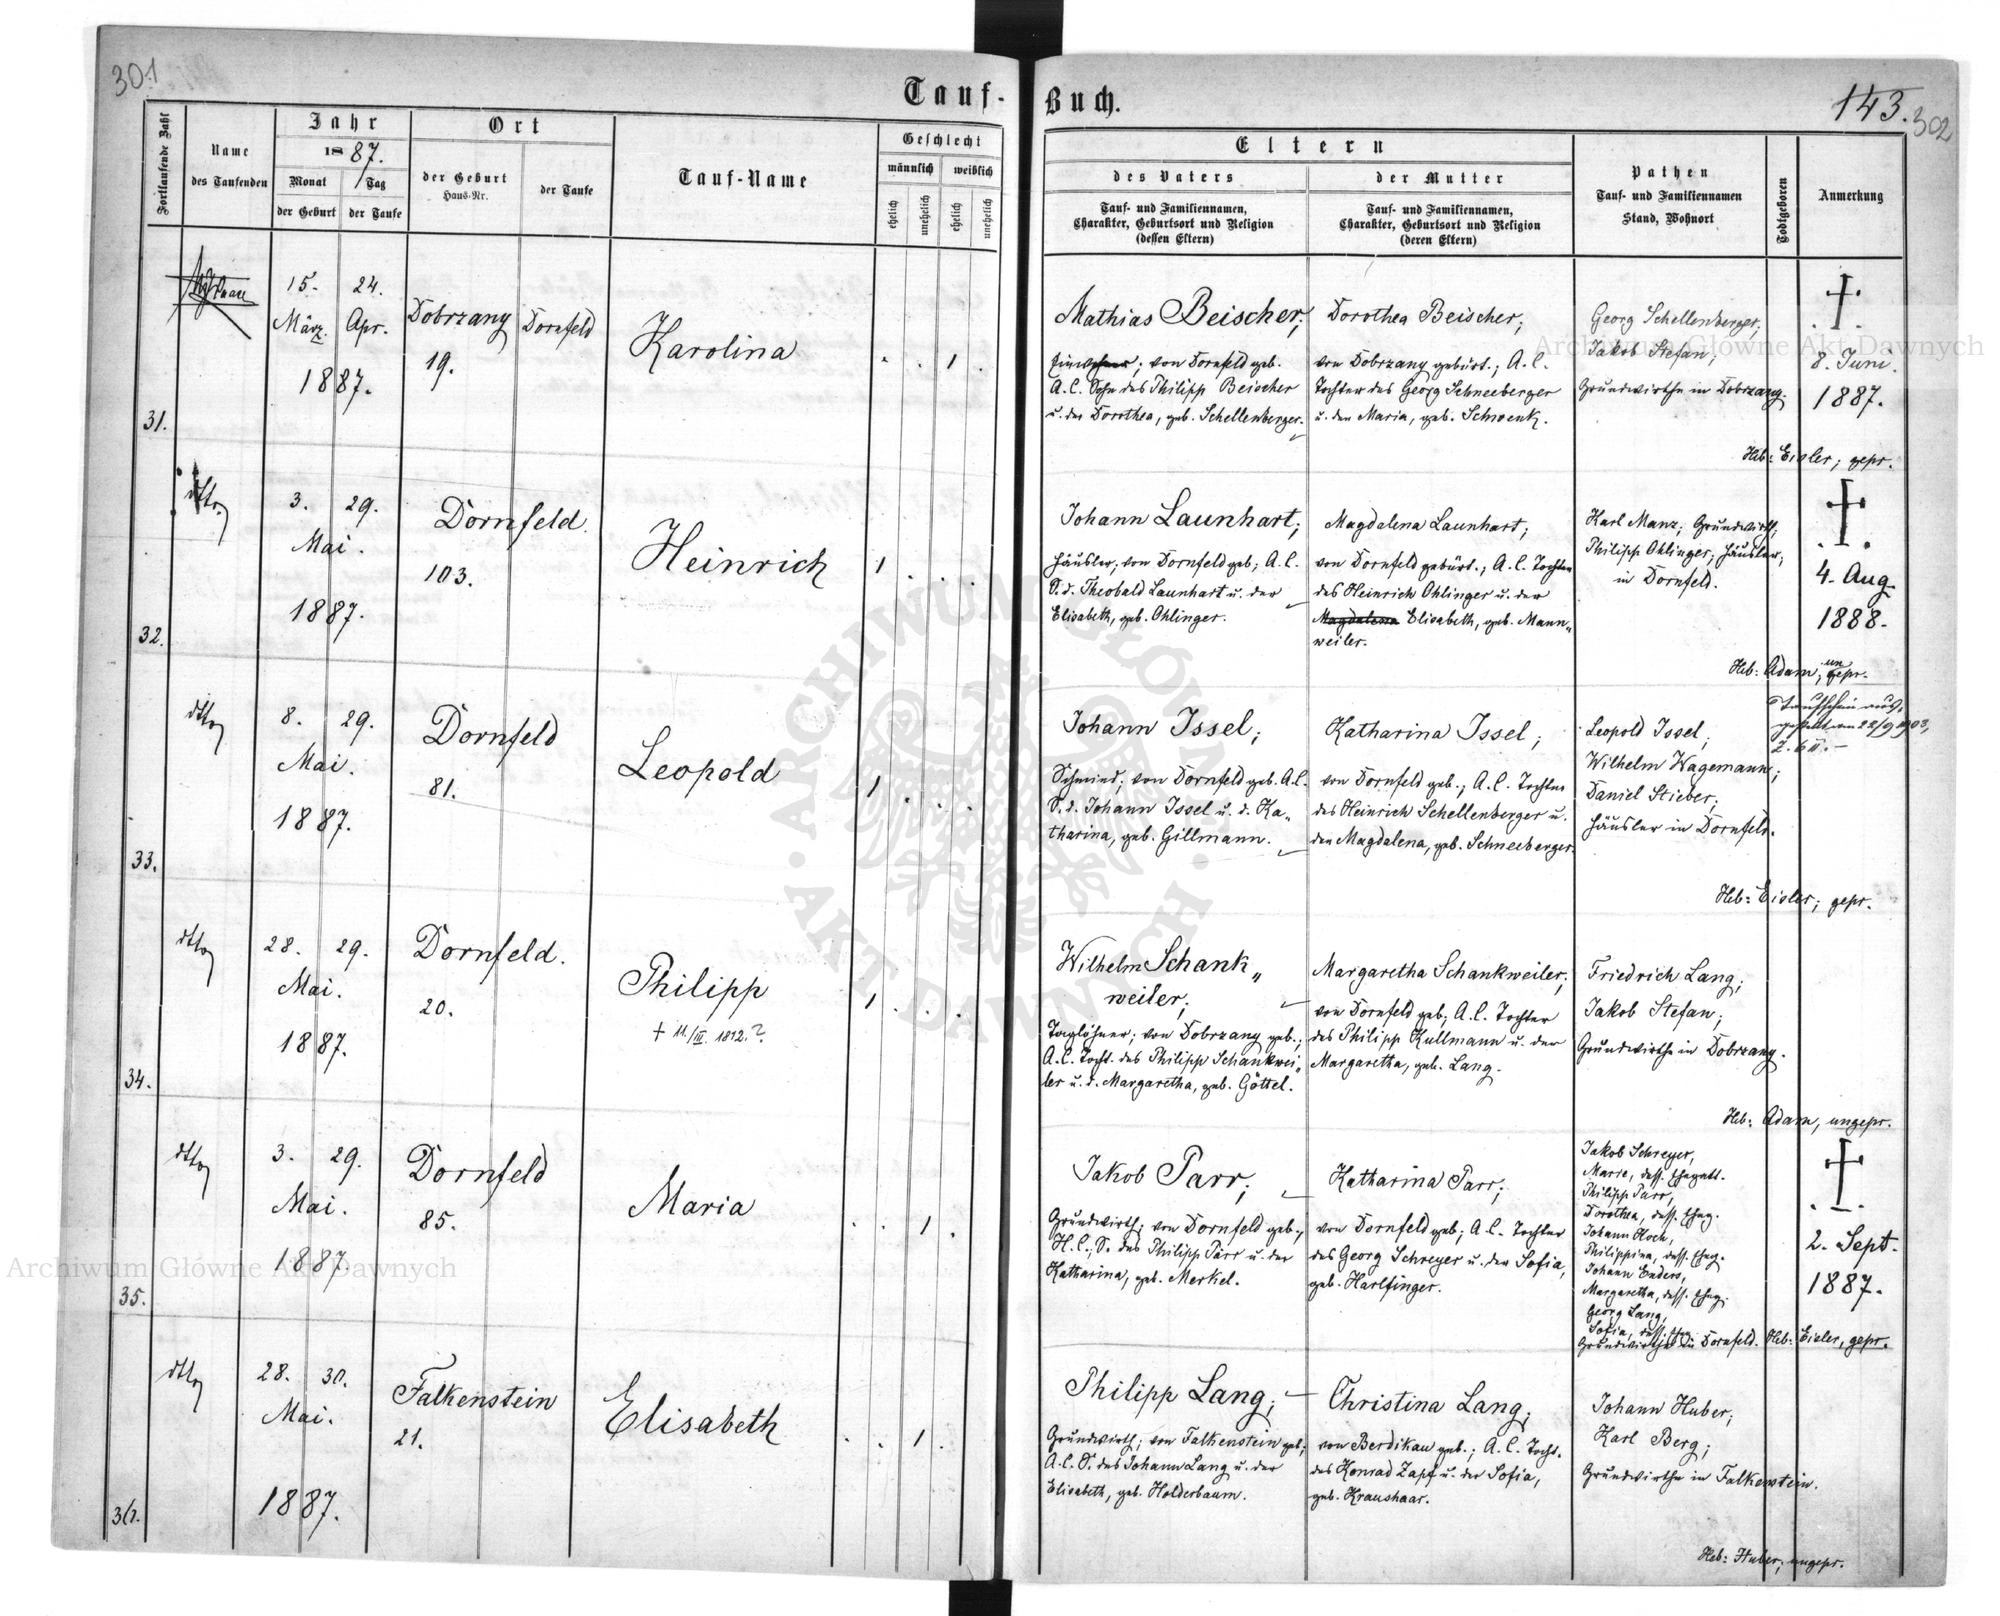 301
Tauf-
Buch.
143.
302
Fortlaufende Zahl
Name
des Taufenden
Jahr
1887.
Monat
Tag
der Geburt
der Taufe
Ort
der Geburt
Haus-Nr.
der Taufe
Tauf-Name
Geschlecht
männlich
weiblich
ehelich
unehelich
ehelich
unehelich
Eltern
des Vaters
Tauf- und Familiennamen,
Charakter, Geburtsort und Religion
(dessen Eltern)
der Mutter
Tauf- und Familiennamen,
Charakter, Geburtsort und Religion
(deren Eltern)
Pathen
Tauf- und Familiennamen
Stand, Wohnort
Todtgeboren
Anmerkung
31.
15. 24.
März. Apr.
1887.
Dobrzany
19.
Dornfeld
Karolina
1
Mathias Beischer;
von Dornfeld geb.
A.C. Sohn des Philipp Beischer
u. der Dorothea, geb. Schellenberger.
Dorothea Beischer;
von Dobrzany gebürt.; A.C.
Tochter des Georg Schneeberger
u. der Maria, geb. Schwenk.
Georg Schellenberger;
Jakob Stefan;
Grundwirthe in Dobrzany.
8. Juni
1887.
Heb: Eisler; gepr.
32.
dtto
3. 29.
Mai.
1887.
Dornfeld.
103.
Heinrich
1
Johann Launhart;
Häusler; von Dornfeld geb; A.C.
S. d. Theobald Launhart u. der
Elisabeth, geb. Ohlinger.
Magdalena Launhart;
von Dornfeld gebürt.; A.C. Tochter
des Heinrich Ohlinger u. der
Magdalena Elisabeth, geb. Mann„
weiler.
Karl Manz; Grundwirth;
Philipp Ohlinger; Häusler;
in Dornfeld.
4. Aug.
1888.
Heb: Adam; un
gepr.
33.
dtto
8. 29.
Mai.
1887.
Dornfeld
81.
Leopold
1
Johann Issel;
Schmied; von Dornfeld geb. A.C.
S. d. Johann Issel u. d. Ka„
tharina, geb. Gillmann.
Katharina Issel;
von Dornfeld geb.; A.C. Tochter
des Heinrich Schellenberger u.
der Magdalena, geb. Schneeberger.
Leopold Issel;
Wilhelm Wagemann;
Daniel Stieber;
Häusler in Dornfeld.
Taufschein aus„
gestellt am 22/9 1903,
Heb: Eisler; gepr.
34.
dtto
28. 29.
Mai.
1887.
Dornfeld.
20.
Philipp
† 11./III. 1812.?
1
Wilhelm Schank„
weiler;
Taglöhner; von Dobrzany geb.;
A.C. Tocht. des Philipp Schankwei„
ler u. d. Margaretha, geb. Göttel.
Margaretha Schankweiler;
von Dornfeld geb; A.C. Tochter
des Philipp Kullmann u. der
Margaretha, geb. Lang.
Friedrich Lang;
Jakob Stefan;
Grundwirthe in Dobrzany.
Heb: Adam, ungepr.
35.
dtto
3. 29.
Mai.
1887.
Dornfeld
85.
Maria
1
Jakob Parr;
Grundwirth; von Dornfeld geb.;
H.C.; S. des Philipp Parr u. der
Katharina, geb. Merkel.
Katharina Parr;
von Dornfeld geb; A.C. Tochter
des Georg Schreyer u. der Sofia,
geb. Harlfinger.
Jakob Schreyer,
Marie, dess. Ehegatt.
Philipp Parr,
Dorothea, dess. Eheg.
Johann Koch,
Philippina, dess. Eheg.
Johann Enders,
Margaretha, dess. Eheg.
Georg Lang,
Sofia, dess. Eheg.
Grundwirthe in Dornfeld.
2. Sept.
1887.
Heb: Eisler, gepr.
36.
dtto
28. 30.
Mai.
1887.
Falkenstein
21.
Elisabeth
1
Philipp Lang;
Grundwirth; von Falkenstein geb;
A.C. S. des Johann Lang u. der
Elisabeth, geb. Holderbaum.
Christina Lang;
von Berdikau geb.; A.C. Tocht.
des Konrad Zapf u. der Sofia,
geb. Kraushaar.
Johann Huber;
Karl Berg;
Grundwirthe in Falkenstein.
Heb: Huber; ungepr.
Archiwum Główne Akt Dawnych
Archiwum Główne Akt Dawnych
ARCHIWUM GŁÓWNE
AKT DAWNYCH